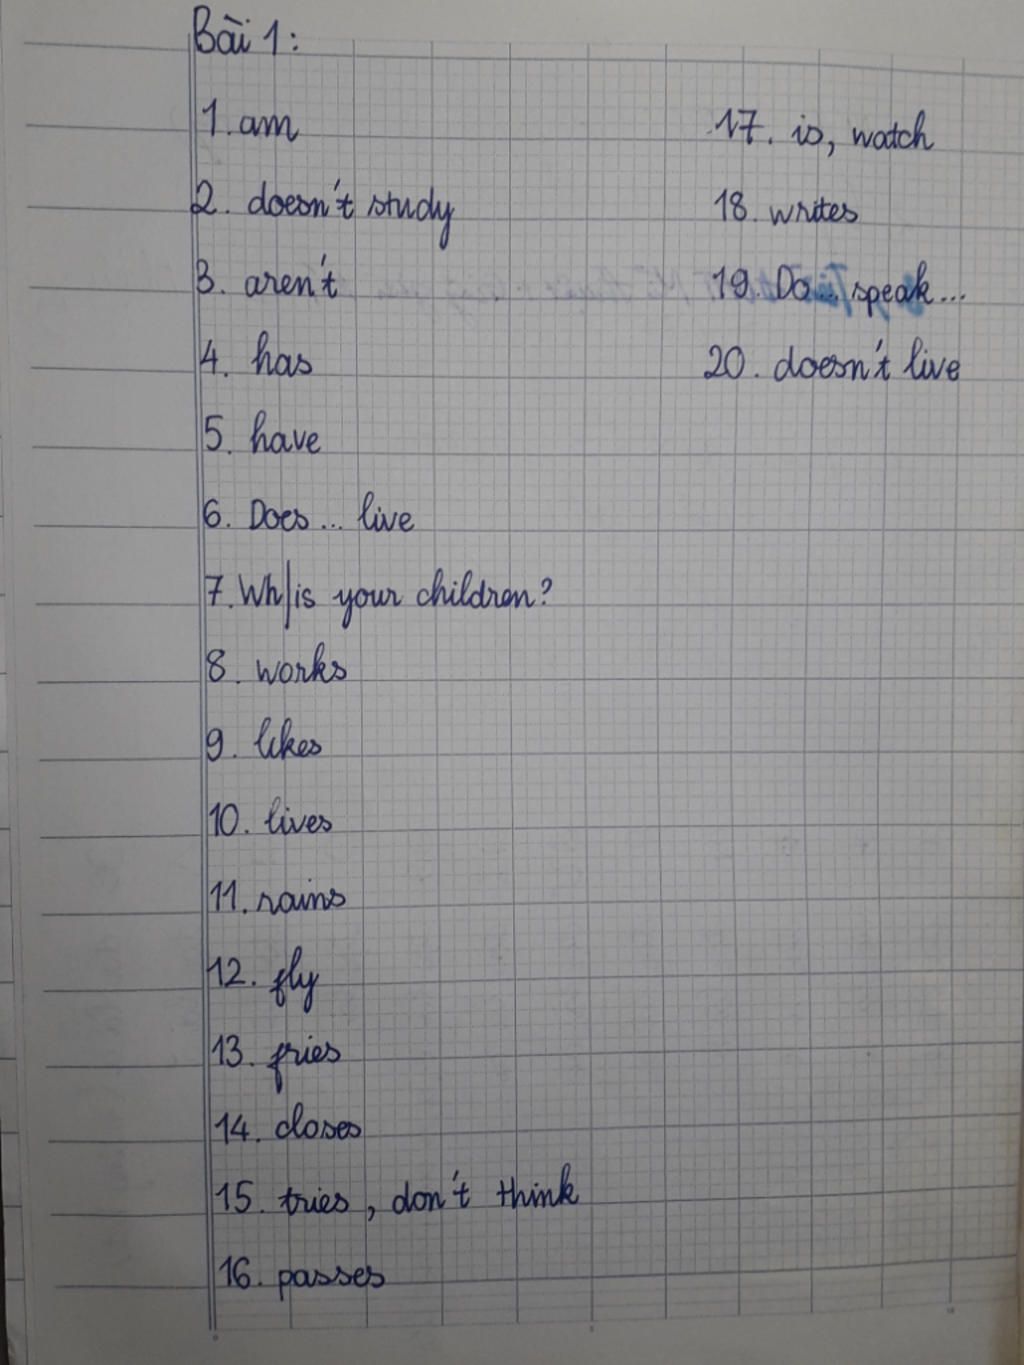 Bài 1:
1. am
2. doesn't study
3. aren't
4. has
5. have
6. Does... live
7. Wh is your children?
8. works
9. likes
10. lives
11. rains
12. fly
13. fries
14. closes
15. tries, don't think
16. passes
17. is, watch
18. writes
19. Do... speak...
20. doesn't live